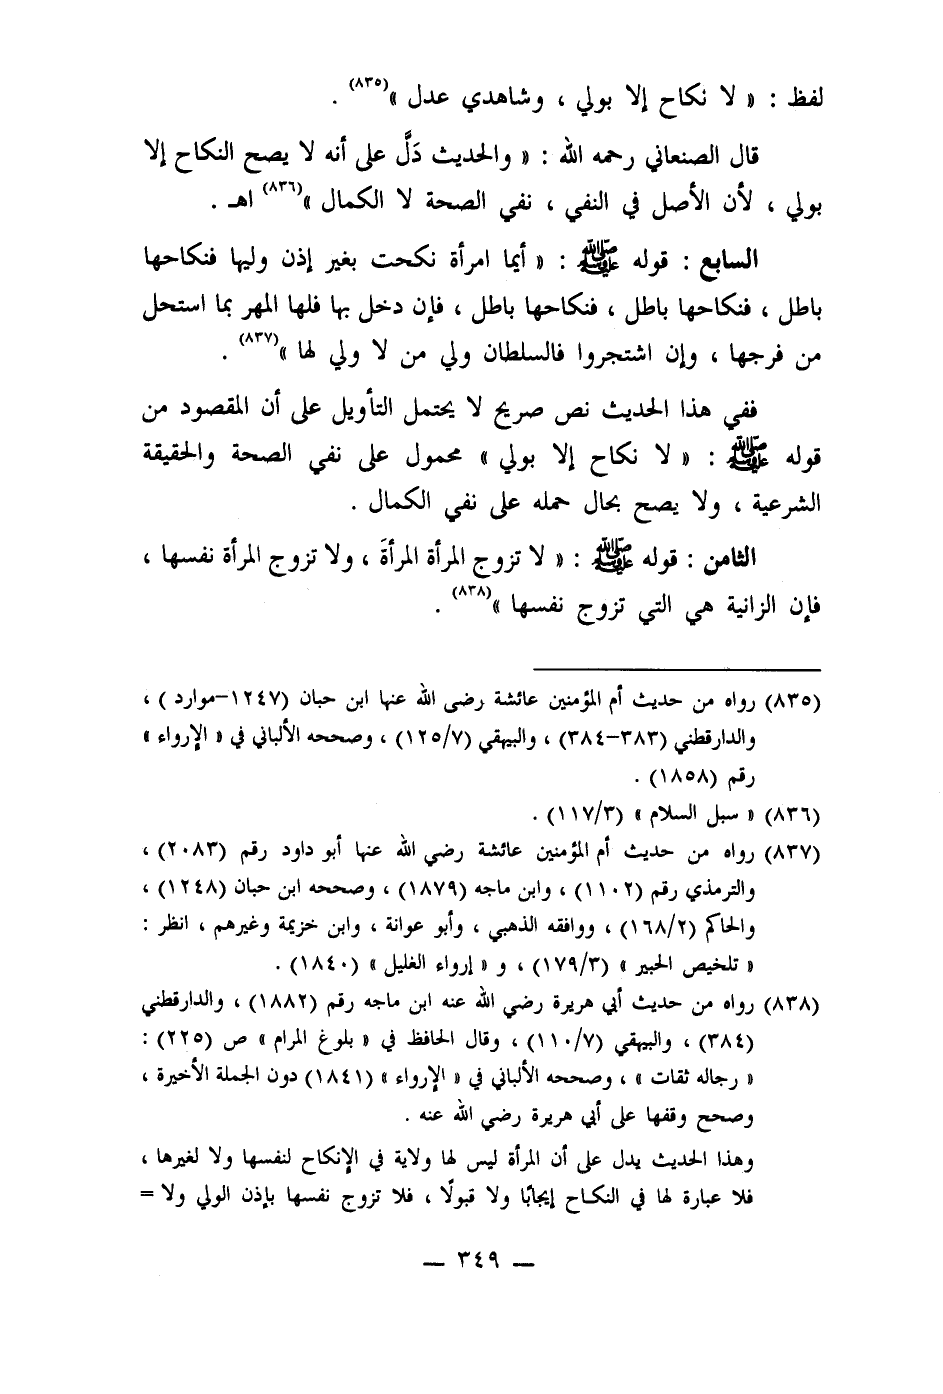 لفظ : « لا نكاح إلا بولي ، وشاهدي عدل »(٨٣٥) .
قال الصنعاني رحمه الله : « والحديث دَلَّ على أنه لا يصح النكاح إلا
بولي ، لأن الأصل في النفي ، نفي الصحة لا الكمال »(٨٣٦) اهـ .
السابع : قوله ﷺ : « أيما امرأة نكحت بغير إذن وليها فنكاحها
باطل ، فنكاحها باطل ، فنكاحها باطل ، فإن دخل بها فلها المهر بما استحل
من فرجها ، وإن اشتجروا فالسلطان ولي من لا ولي لها »(٨٣٧) .
ففي هذا الحديث نص صريح لا يحتمل التأويل على أن المقصود من
قوله ﷺ : « لا نكاح إلا بولي » محمول على نفي الصحة والحقيقة
الشرعية ، ولا يصح بحال حمله على نفي الكمال .
الثامن : قوله ﷺ : « لا تزوج المرأة المرأةَ ، ولا تزوج المرأة نفسها ،
فإن الزانية هي التي تزوج نفسها »(٨٣٨) .
(٨٣٥) رواه من حديث أم المؤمنين عائشة رضي الله عنها ابن حبان (١٢٤٧–موارد ) ،
والدارقطني (٣٨٣–٣٨٤) ، والبيهقي (١٢٥/٧) ، وصححه الألباني في « الإرواء »
رقم (١٨٥٨) .
(٨٣٦) « سبل السلام » (١١٧/٣) .
(٨٣٧) رواه من حديث أم المؤمنين عائشة رضي الله عنها أبو داود رقم (٢٠٨٣) ،
والترمذي رقم (١١٠٢) ، وابن ماجه (١٨٧٩) ، وصححه ابن حبان (١٢٤٨) ،
والحاكم (١٦٨/٢) ، ووافقه الذهبي ، وأبو عوانة ، وابن خزيمة وغيرهم ، انظر :
« تلخيص الحبير » (١٧٩/٣) ، و « إرواء الغليل » (١٨٤٠) .
(٨٣٨) رواه من حديث أبي هريرة رضي الله عنه ابن ماجه رقم (١٨٨٢) ، والدارقطني
(٣٨٤) ، والبيهقي (١١٠/٧) ، وقال الحافظ في « بلوغ المرام » ص (٢٢٥) :
« رجاله ثقات » ، وصححه الألباني في « الإرواء » (١٨٤١) دون الجملة الأخيرة ،
وصحح وقفها على أبي هريرة رضي الله عنه .
وهذا الحديث يدل على أن المرأة ليس لها ولاية في الإنكاح لنفسها ولا لغيرها ،
فلا عبارة لها في النكاح إيجابًا ولا قبولًا ، فلا تزوج نفسها بإذن الولي ولا =
— ٣٤٩ —